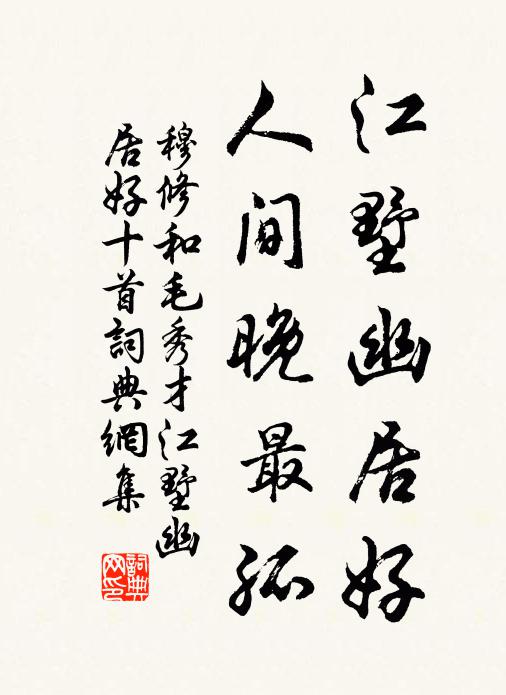 江墅幽居好
人间晚最孤
穆修和毛秀才江墅幽
居好十首詞典網集
詞典
网印